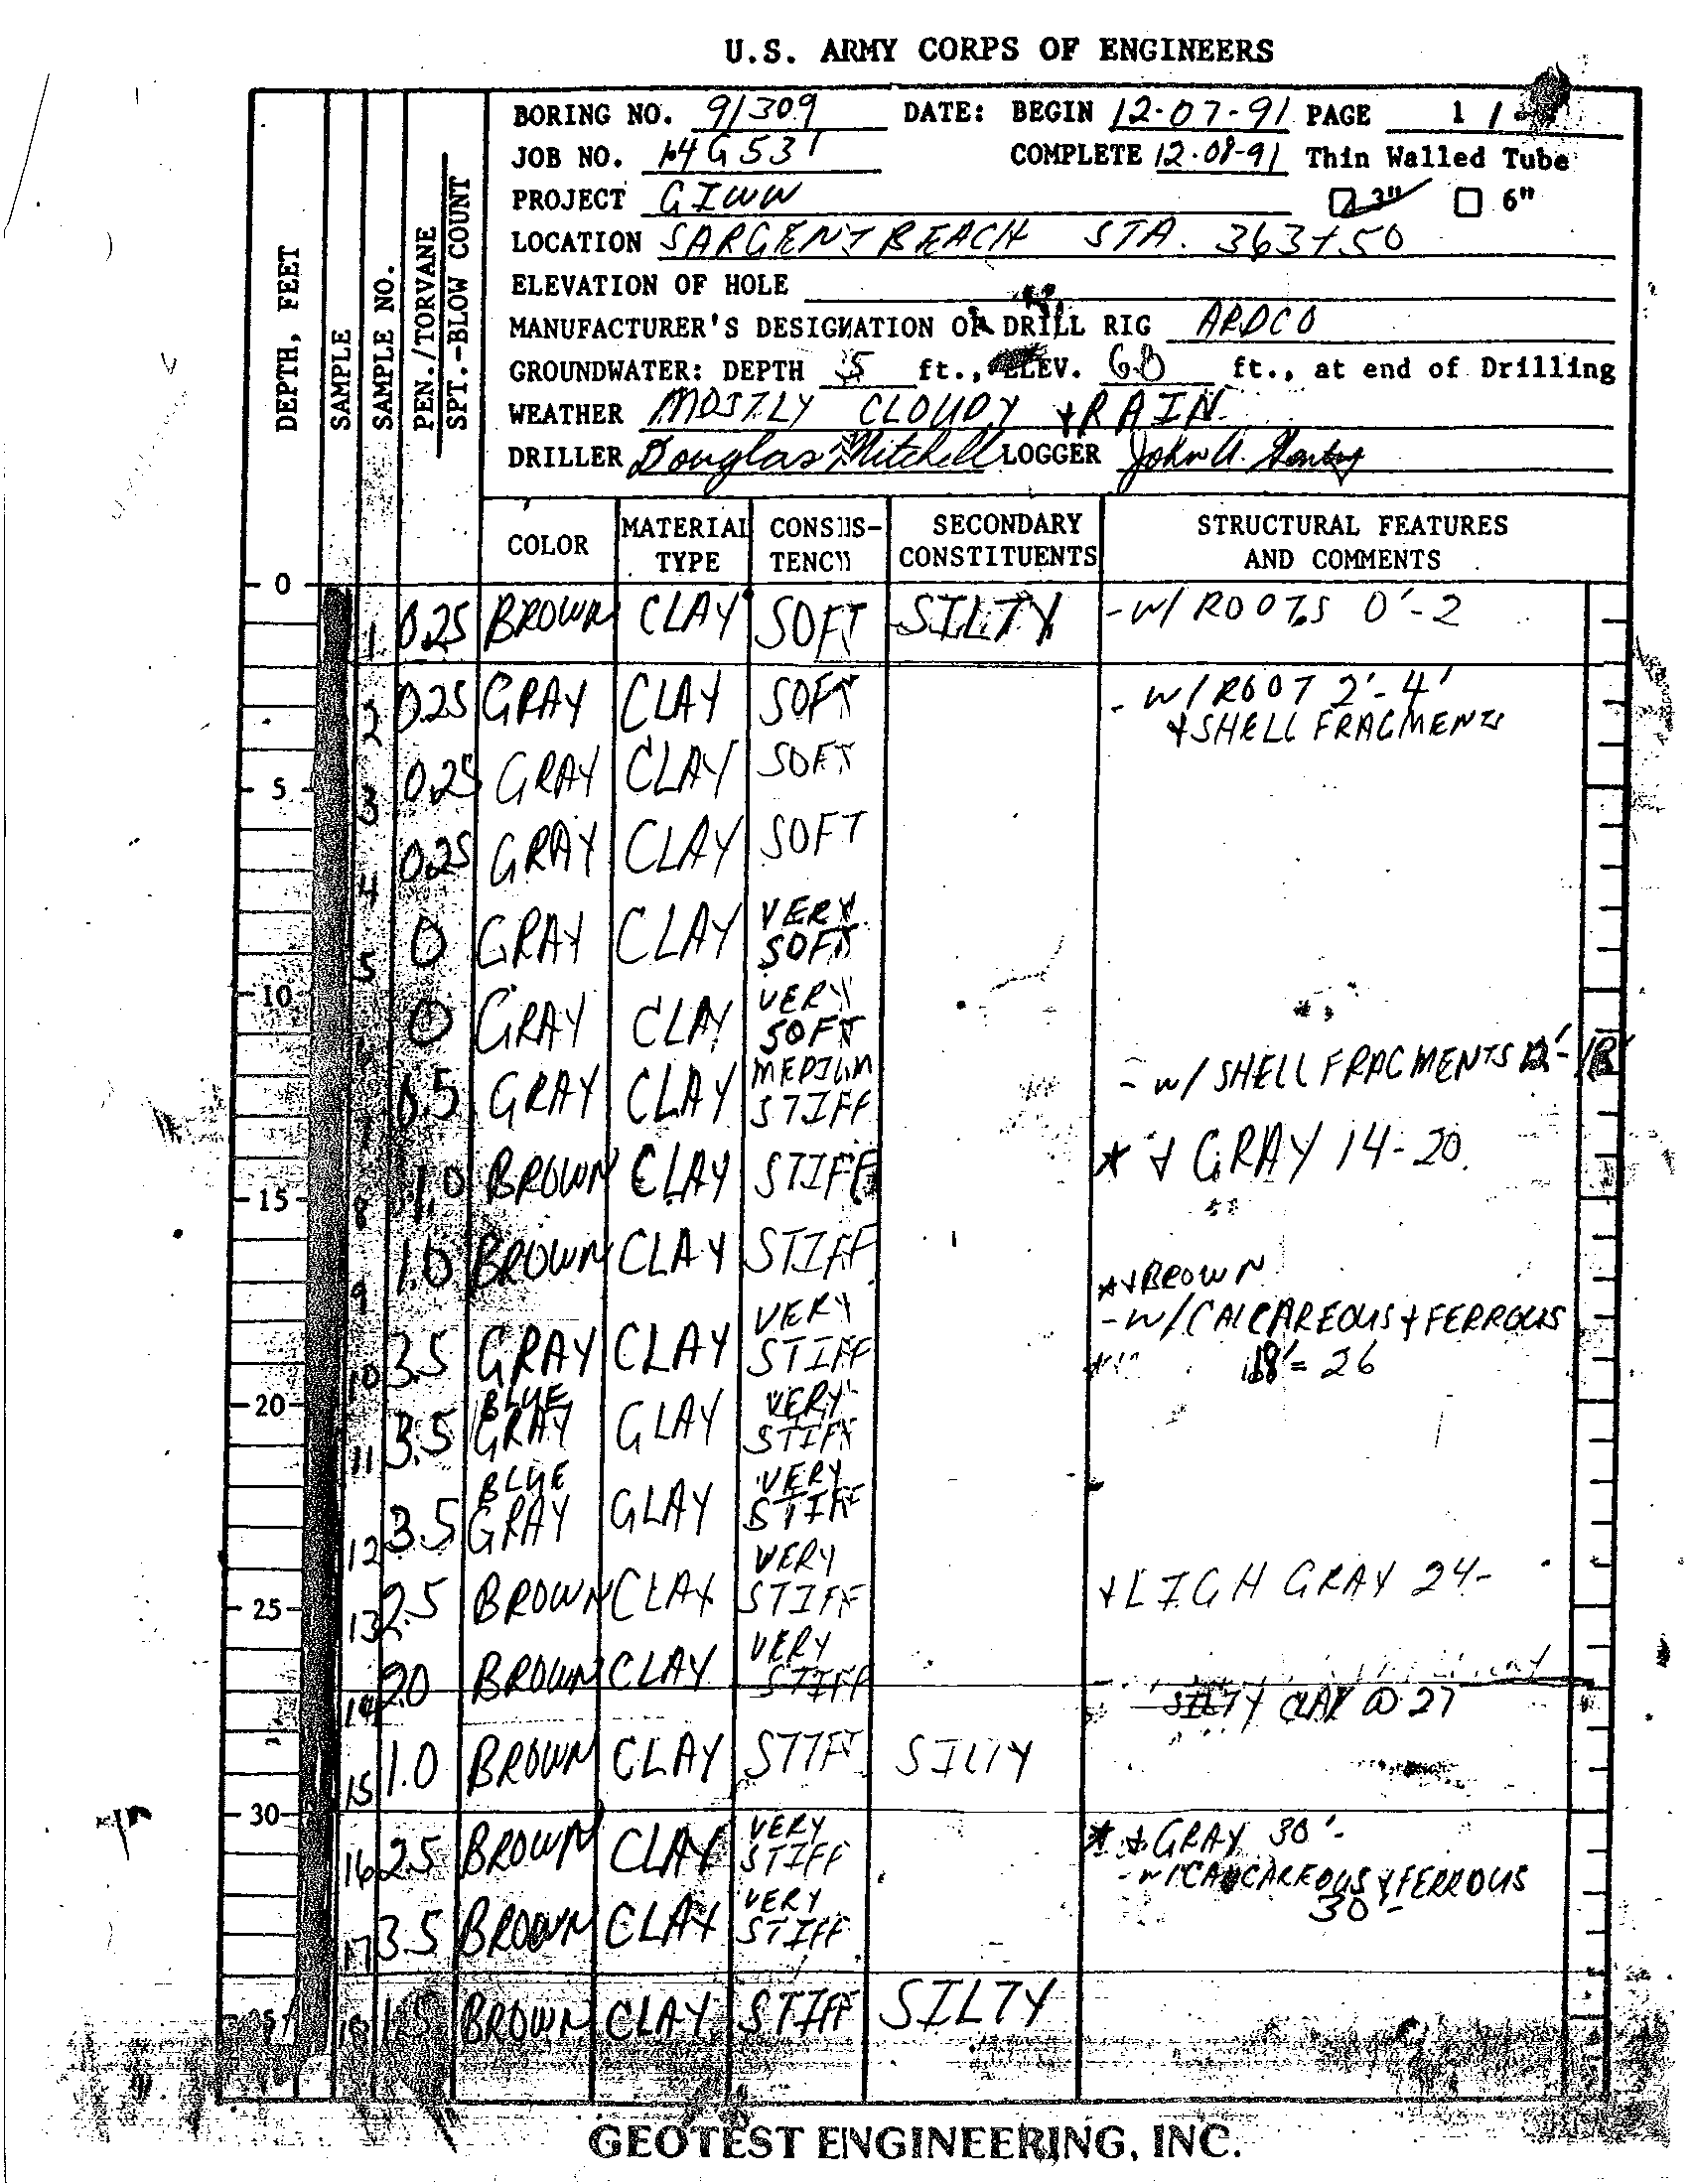 U.S. ARMY CORPS OF ENGINEERS
BORING NO. 91309 DATE: BEGIN 12-07-91 PAGE 1 /
JOB NO. COMPLETE 12-08-91 Thin Walled Tube
PROJECT GIWW 3" 6"
LOCATION SARGENT BEACH STA. 363+50
ELEVATION OF HOLE
MANUFACTURER'S DESIGNATION OF DRILL RIG ARDCO
GROUNDWATER: DEPTH 5 ft., ELEV. ft., at end of Drilling
WEATHER MOSTLY CLOUDY + RAIN
DRILLER Douglas Mitchell LOGGER John
DEPTH, FEET
SAMPLE
SAMPLE NO.
PEN./TORVANE
SPT.-BLOW COUNT
COLOR MATERIAL TYPE CONSISTENCY SECONDARY CONSTITUENTS STRUCTURAL FEATURES AND COMMENTS
0
1 0.25 BROWN CLAY SOFT SILTY -W/ ROOTS 0'-2
2 0.25 GRAY CLAY SOFT - W/ ROOT 2'-4'
+ SHELL FRAGMENTS
5 3 0.25 GRAY CLAY SOFT
4 0.25 GRAY CLAY SOFT
5 0 GRAY CLAY VERY SOFT
10 0 GRAY CLAY VERY SOFT
- W/ SHELL FRAGMENTS 12'-
7 0.5 GRAY CLAY MEDIUM STIFF
* + GRAY 14-20.
15 8 1.0 BROWN CLAY STIFF
9 1.0 BROWN CLAY STIFF
*+BROWN
10 3.5 GRAY CLAY VERY STIFF - W/ CALCAREOUS + FERROUS
18'= 26
20 11 3.5 BLUE GRAY CLAY VERY STIFF
12 3.5 BLUE GRAY CLAY VERY STIFF
25 13 2.5 BROWN CLAY VERY STIFF + LIGH GRAY 24-
14 2.0 BROWN CLAY VERY STIFF
SILTY CLAY @ 27
15 1.0 BROWN CLAY STIFF SILTY
30 16 2.5 BROWN CLAY VERY STIFF * + GRAY 30'-
- W/ CALCAREOUS + FERROUS
30'-
17 3.5 BROWN CLAY VERY STIFF
35 18 1.5 BROWN CLAY STIFF SILTY
GEOTEST ENGINEERING, INC.